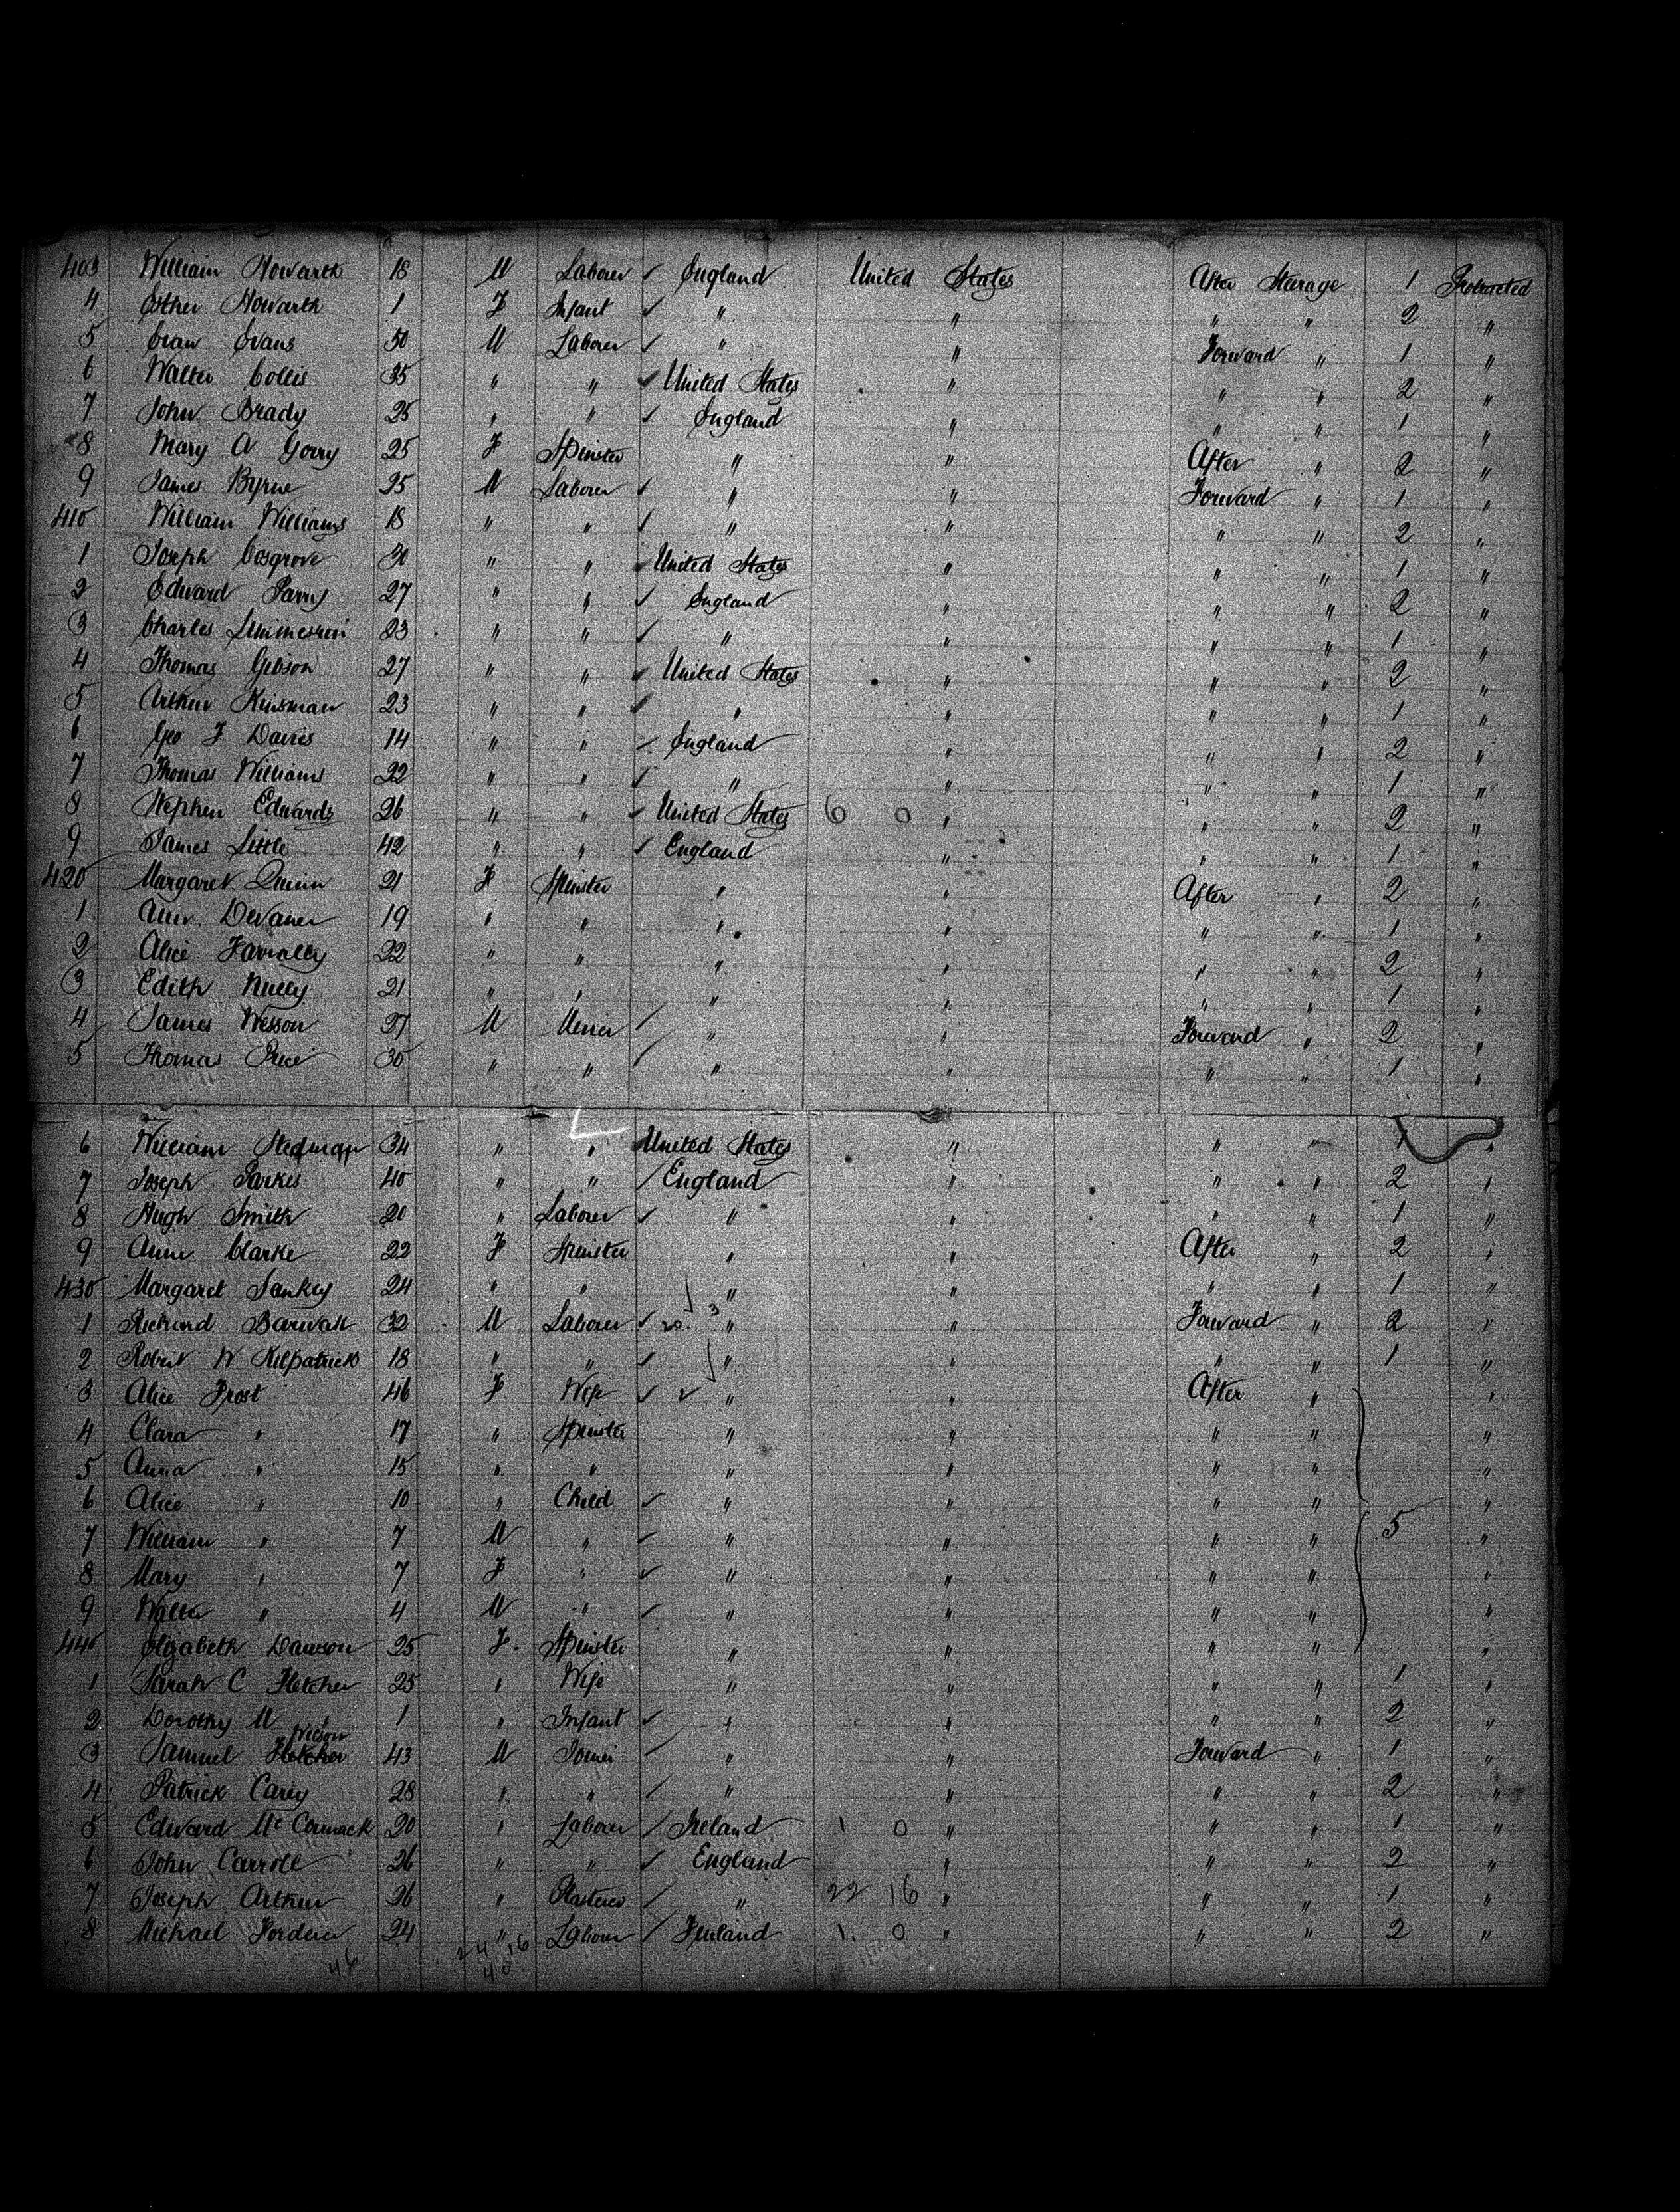 403 William Howarth 18 M Laborer ✓ England United States After Steerage 1 Protracted
4 Esther Howarth 1 F Infant ✓ " " " " 2 "
5 Evan Evans 50 M Laborer ✓ " " Forward " 1 "
6 Walter Collis 35 " " ✓ United States " " " 2 "
7 John Brady 25 " " ✓ England " " " 1 "
8 Mary A Gorry 25 F Spinster " " After " 2 "
9 James Byrne 25 M Laborer ✓ " " Forward " 1 "
410 William Williams 18 " " ✓ " " " " 2 "
1 Joseph Cosgrove 30 " " ✓ United States " " " 1 "
2 Edward Parry 27 " " ✓ England " " " 2 "
3 Charles 23 " " ✓ " " " " 1 "
4 Thomas Gibson 27 " " ✓ United States " " " 2 "
5 Arthur Kinsman 23 " " ✓ " " " " 1 "
6 Geo F Davies 14 " " ✓ England " " " 2 "
7 Thomas Williams 22 " " ✓ " " " " 1 "
8 Stephen Edwards 26 " " ✓ United States 6 0 " " " 2 "
9 James Little 42 " " ✓ England " " " 1 "
420 Margaret Quinn 21 F Spinster " " After " 2 "
1 Ann 19 " " " " " " 1 "
2 Alice 22 " " " " " " 2 "
3 Edith 21 " " " " " " 1 "
4 James Wesson 27 M Miner / " " Forward " 2 "
5 Thomas Price 30 " " / " " " " 1 "
6 William Stedman 34 " " United States " " " 1 "
7 Joseph Parkes 40 " " / England " " " 2 "
8 Hugh Smith 20 " Laborer ✓ " " " " 1 "
9 Anne Clarke 22 F Spinster " " After " 2 "
430 Margaret Sankey 24 " " " " " " 1 "
1 Richard 32 M Laborer ✓ 20. 3 " " Forward " 2 "
2 Robert W Kilpatrick 18 " " ✓ " " " " 1 "
3 Alice Frost 46 F Wife ✓ 2 " " After " "
4 Clara " 17 " Spinster " " " " "
5 Anna " 15 " " " " " " "
6 Alice " 10 " Child ✓ " " " " "
7 William " 7 M " ✓ " " " " 5 "
8 Mary " 7 F " ✓ " " " " "
9 Walter " 4 M " ✓ " " " " "
440 Elizabeth Dawson 25 F. Spinster " " " " "
1 Sarah C Fletcher 25 " Wife " " " " 1 "
2 Dorothy M " 1 " Infant ✓ " " " " 2 "
Wilson
3 Samuel Fletcher 43 M Joiner / " " Forward " 1 "
4 Patrick Carey 28 " " / " " " " 2 "
5 Edward McCormack 20 " Laborer / Ireland 1 0 " " " 1 "
6 John Carroll 26 " " ✓ England " " " 2 "
7 Joseph Arthur 26 " Plasterer / " 22 16 " " " 1 "
8 Michael 24 " Laborer / Finland 1. 0 " " " 2 "
46 24 16
40